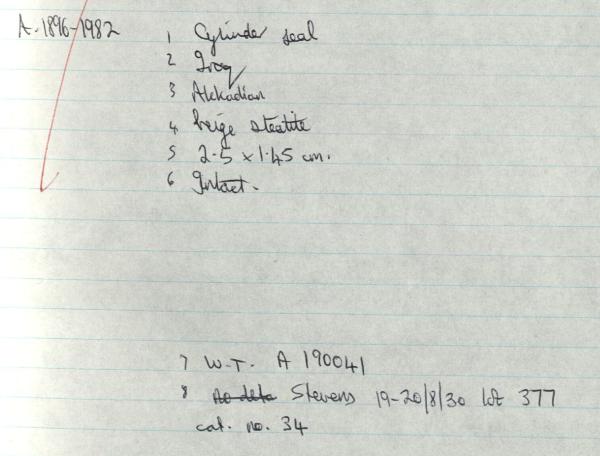 A.1896-1982
1 Cylinder seal
2 Iraq
3 Akkadian
4 beige steatite
5 2.5 x 1.45 cm.
6 Intact.
7 W.T. A 190041
8 no data Stevens 19-20/8/30 lot 377
cat. no. 34